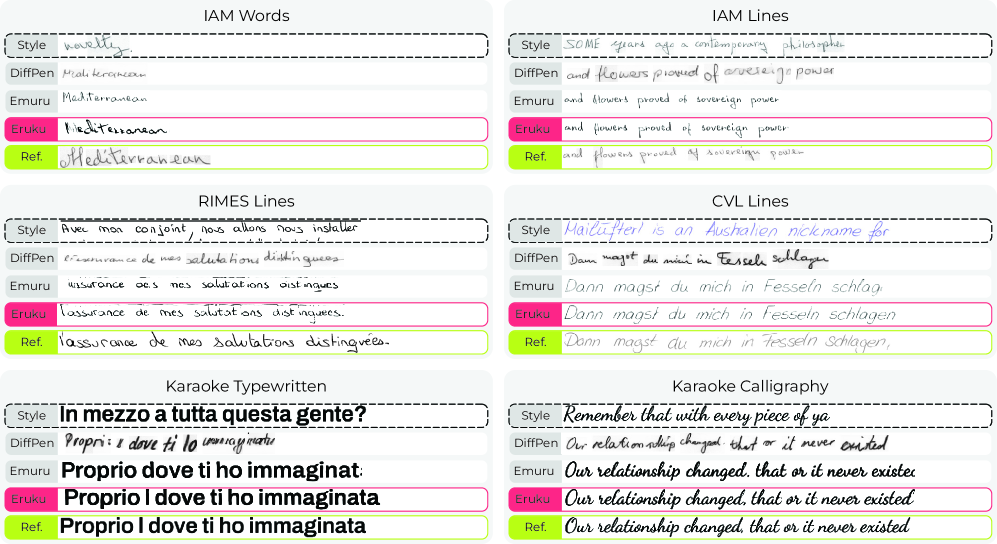 IAM Words
Style novelty.
DiffPen Mediterranean
Emuru Mediterranean
Eruku Mediterranean
Ref. Mediterranean
IAM Lines
Style SOME years ago a contemporary philosopher
DiffPen and flowers proved of sovereign power
Emuru and flowers proved of sovereign power
Eruku and flowers proved of sovereign power
Ref. and flowers proved of sovereign power
RIMES Lines
Style Avec mon conjoint, nous allons nous installer
DiffPen de mes salutations distinguees
Emuru mes salutations distingues
Eruku l'assurance de mes salutations distinguees.
Ref. l'assurance de mes salutations distinguées.
CVL Lines
Style Mailüfterl is an Australien nickname for
DiffPen Dann magst du mich in Fesseln schlagen
Emuru Dann magst du mich in Fesseln schlag
Eruku Dann magst du mich in Fesseln schlagen
Ref. Dann magst du mich in Fesseln schlagen,
Karaoke Typewritten
Style In mezzo a tutta questa gente?
DiffPen dove ti lo
Emuru Proprio dove ti ho immaginat
Eruku Proprio l dove ti ho immaginata
Ref. Proprio l dove ti ho immaginata
Karaoke Calligraphy
Style Remember that with every piece of ya
DiffPen Our relationship changed. that or it never existed
Emuru Our relationship changed. that or it never existed
Eruku Our relationship changed, that or it never existed
Ref. Our relationship changed, that or it never existed